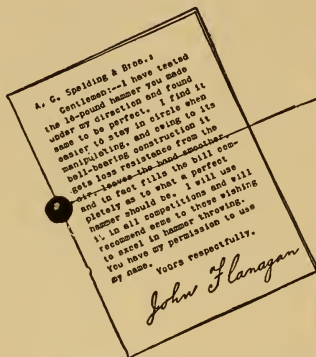 A. G. Spalding & Bros.,
Gentlemen:--I have tested
the 16-pound hammer you made
under my direction and found
same to be perfect. I find it
easier to stay in circle when
manipulating, and owing to its
ball-bearing construction it
gets less resistance from the
air, leaves the hand smoother,
and in fact fills the bill com-
pletely as to what a perfect
hammer should be. I will use
it in all competitions and will
recommend same to those wishing
to excel in hammer throwing.
You have my permission to use
my name. Yours respectfully,
John Flanagan